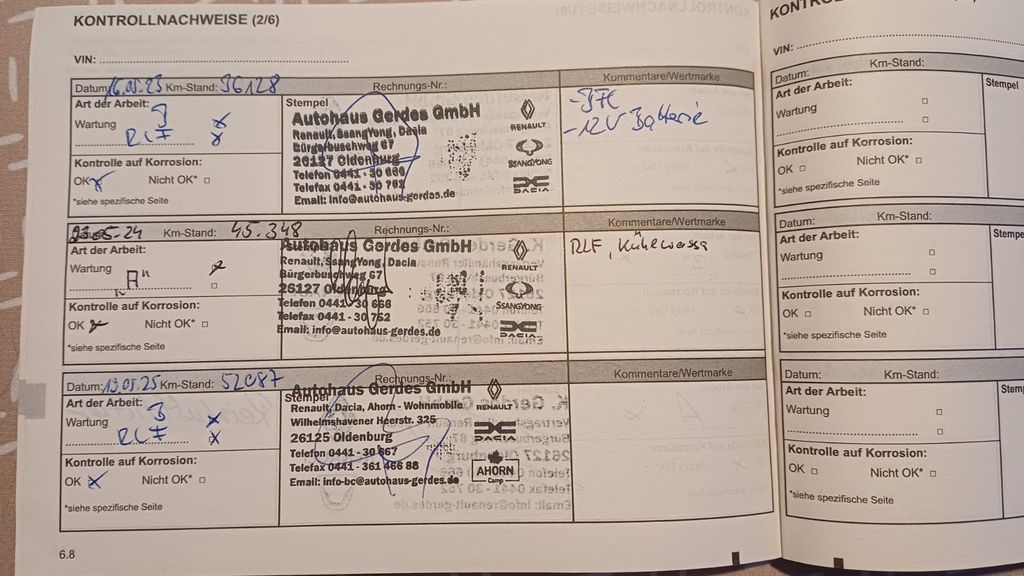 KONTROLLNACHWEISE (2/6)
VIN:
Datum: 16.05.23 Km-Stand: 36128 Rechnungs-Nr.: Kommentare/Wertmarke
Art der Arbeit:
Wartung
RLF
Kontrolle auf Korrosion:
OK Nicht OK*
*siehe spezifische Seite
Stempel
Autohaus Gerdes GmbH
Renault, SsangYong, Dacia
Bürgerbuschweg 67
26127 Oldenburg
Telefon 0441 - 30 666
Telefax 0441 - 30 752
Email: info@autohaus-gerdes.de
RENAULT
SSANGYONG
DACIA
- 12V Batterie
23.05.24 Km-Stand: 45.348 Rechnungs-Nr.: Kommentare/Wertmarke
Art der Arbeit:
Wartung
"A"
Kontrolle auf Korrosion:
OK Nicht OK*
*siehe spezifische Seite
Autohaus Gerdes GmbH
Renault, SsangYong, Dacia
Bürgerbuschweg 67
26127 Oldenburg
Telefon 0441 - 30 666
Telefax 0441 - 30 752
Email: info@autohaus-gerdes.de
RENAULT
SSANGYONG
DACIA
RLF, Kühlwasser
Datum: 13.05.25 Km-Stand: 52087 Rechnungs-Nr.: Kommentare/Wertmarke
Art der Arbeit:
Wartung
RLF
Kontrolle auf Korrosion:
OK Nicht OK*
*siehe spezifische Seite
Autohaus Gerdes GmbH
Renault, Dacia, Ahorn - Wohnmobile
Wilhelmshavener Heerstr. 325
26125 Oldenburg
Telefon 0441 - 30 667
Telefax 0441 - 361 466 88
Email: info-bc@autohaus-gerdes.de
RENAULT
DACIA
AHORN
Camp
6.8
VIN:
Datum: Km-Stand:
Art der Arbeit: Stempel
Wartung
Kontrolle auf Korrosion:
OK Nicht OK*
*siehe spezifische Seite
Datum: Km-Stand:
Art der Arbeit: Stempe
Wartung
Kontrolle auf Korrosion:
OK Nicht OK*
*siehe spezifische Seite
Datum: Km-Stand:
Art der Arbeit: Stemp
Wartung
Kontrolle auf Korrosion:
OK Nicht OK*
*siehe spezifische Seite